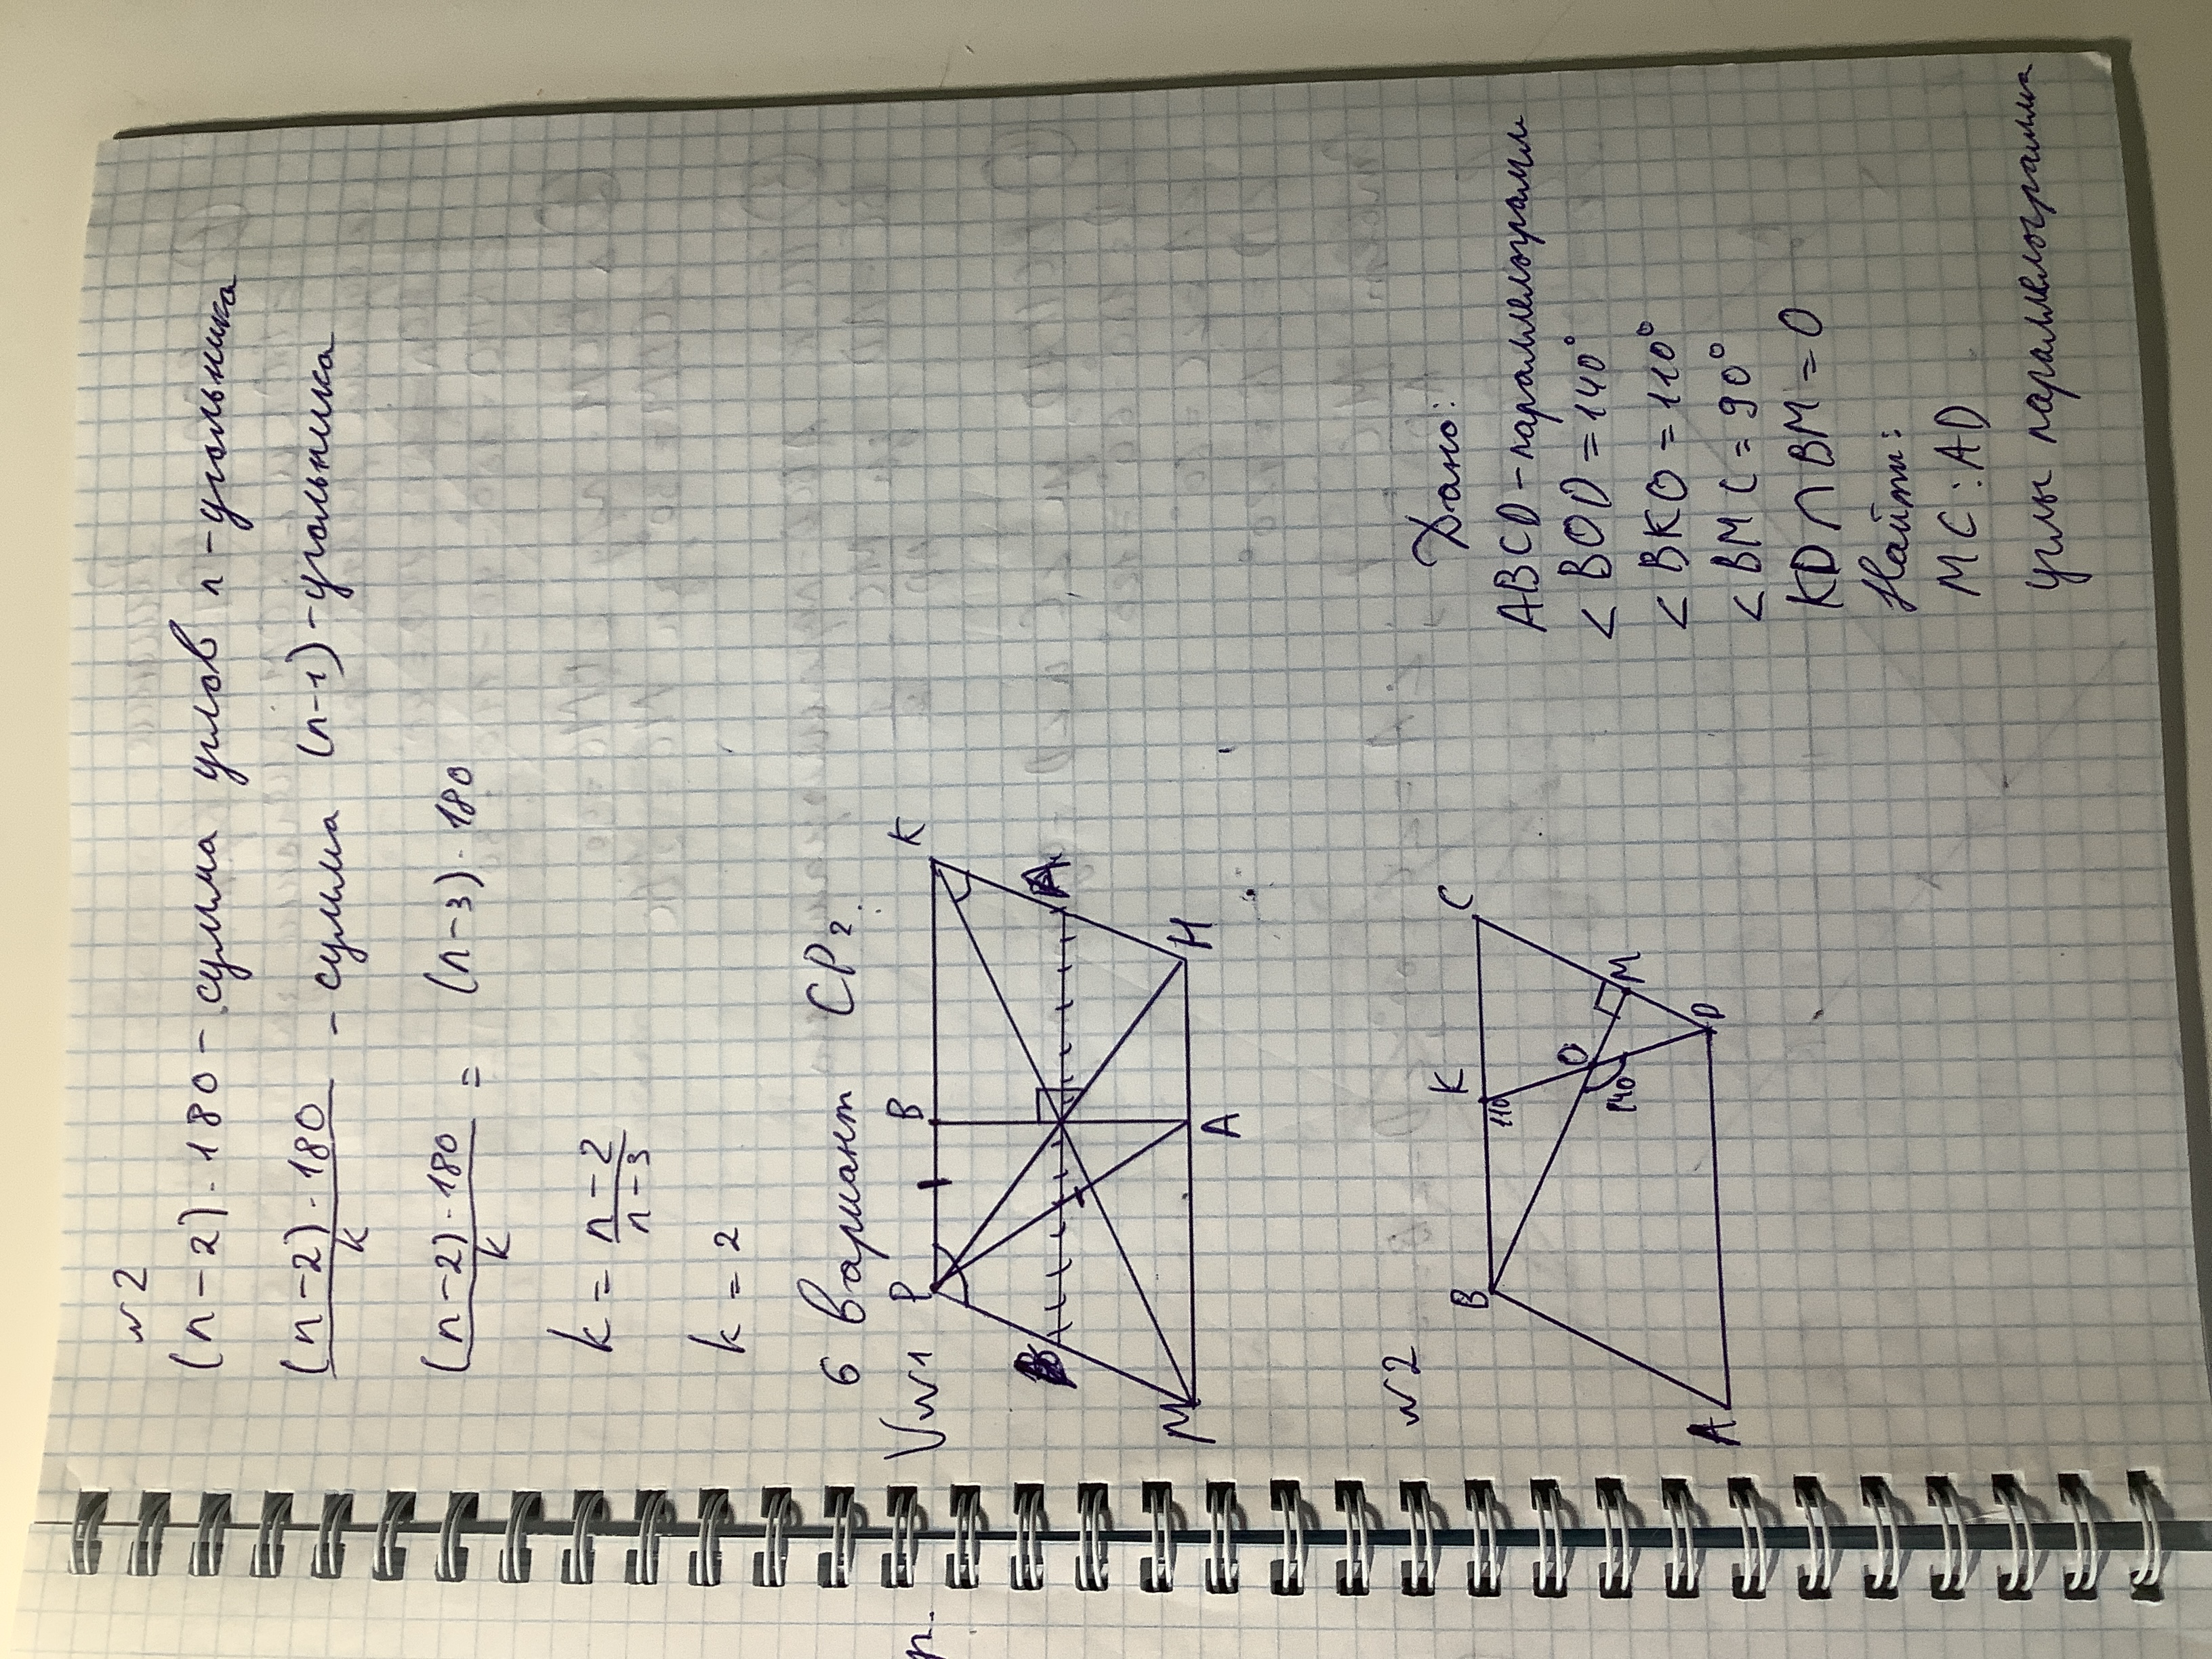 №2
(n-2)·180 - сумма углов n-угольника
(n-2)·180/k - сумма (n-1)-угольника
(n-2)·180/k = (n-3)·180
k = n-2/n-3
k = 2
6 вариант СР2.
V№1
P B K
M A H
№2
B K C
110
O
140 M
A D
Дано:
ABCD - параллелограмм
∠BOD = 140°
∠BKO = 110°
∠BMC = 90°
KD∩BM = O
Найти:
MC:AD
углы параллелограмма